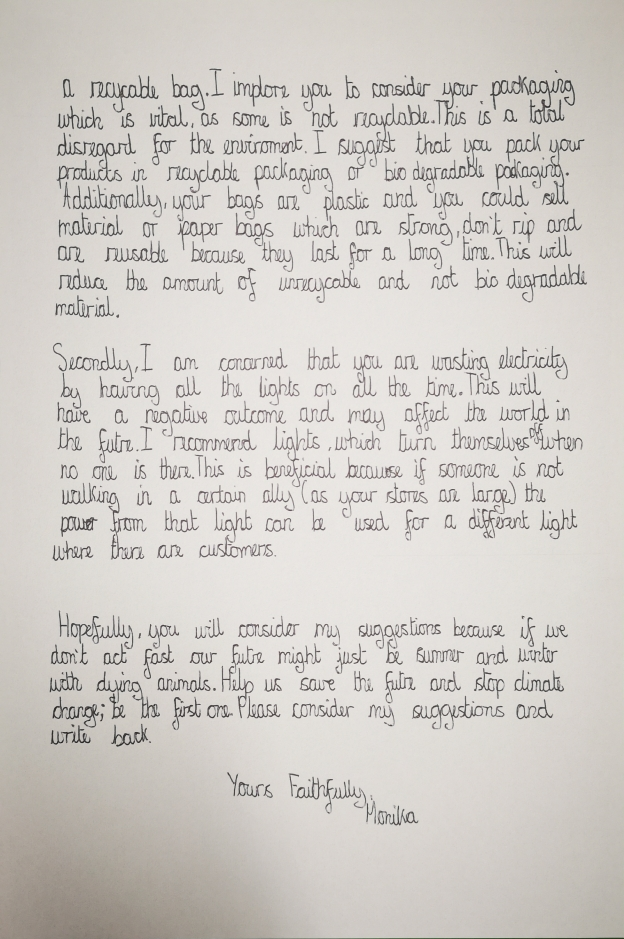 a recycable bag. I implore you to consider your packaging
which is vital, as some is not recyclable. This is a total
disregard for the enviroment. I suggest that you pack your
products in recyclable packaging or bio degradable packaging.
Additionally, your bags are plastic and you could sell
material or paper bags which are strong, don't rip and
are reusable because they last for a long time. This will
reduce the amount of unrecycable and not bio degradable
material.
Secondly, I am concerned that you are wasting electricity
by having all the lights on all the time. This will
have a negative outcome and may affect the world in
the futre. I recommend lights, which turn themselves off when
no one is there. This is beneficial because if someone is not
walking in a certain ally (as your stores are large) the
power from that light can be used for a different light
where there are customers.
Hopefully, you will consider my suggestions because if we
don't act fast our futre might just be summer and winter
with dying animals. Help us save the futre and stop climate
change; be the first one. Please consider my suggestions and
write back.
Yours Faithfully,
Monika